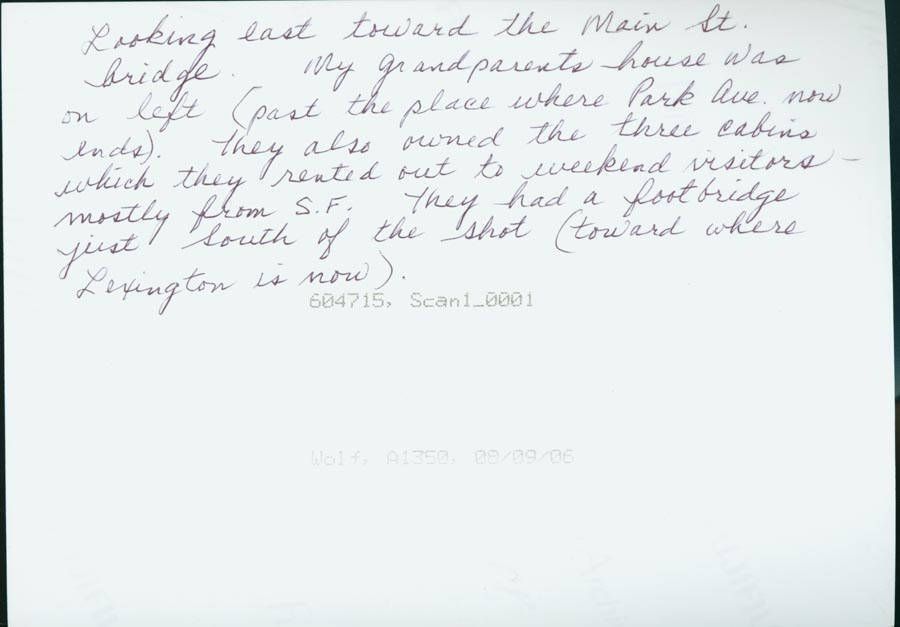 Looking east toward the Main St.
bridge. My grandparents house was
on left (past the place where Park Ave. now
ends). They also owned the three cabins
which they rented out to weekend visitors -
mostly from S.F. They had a footbridge
just south of the shot (toward where
Lexington is now).
604715, Scan1_0001
Wolf, A1350, 08/09/06